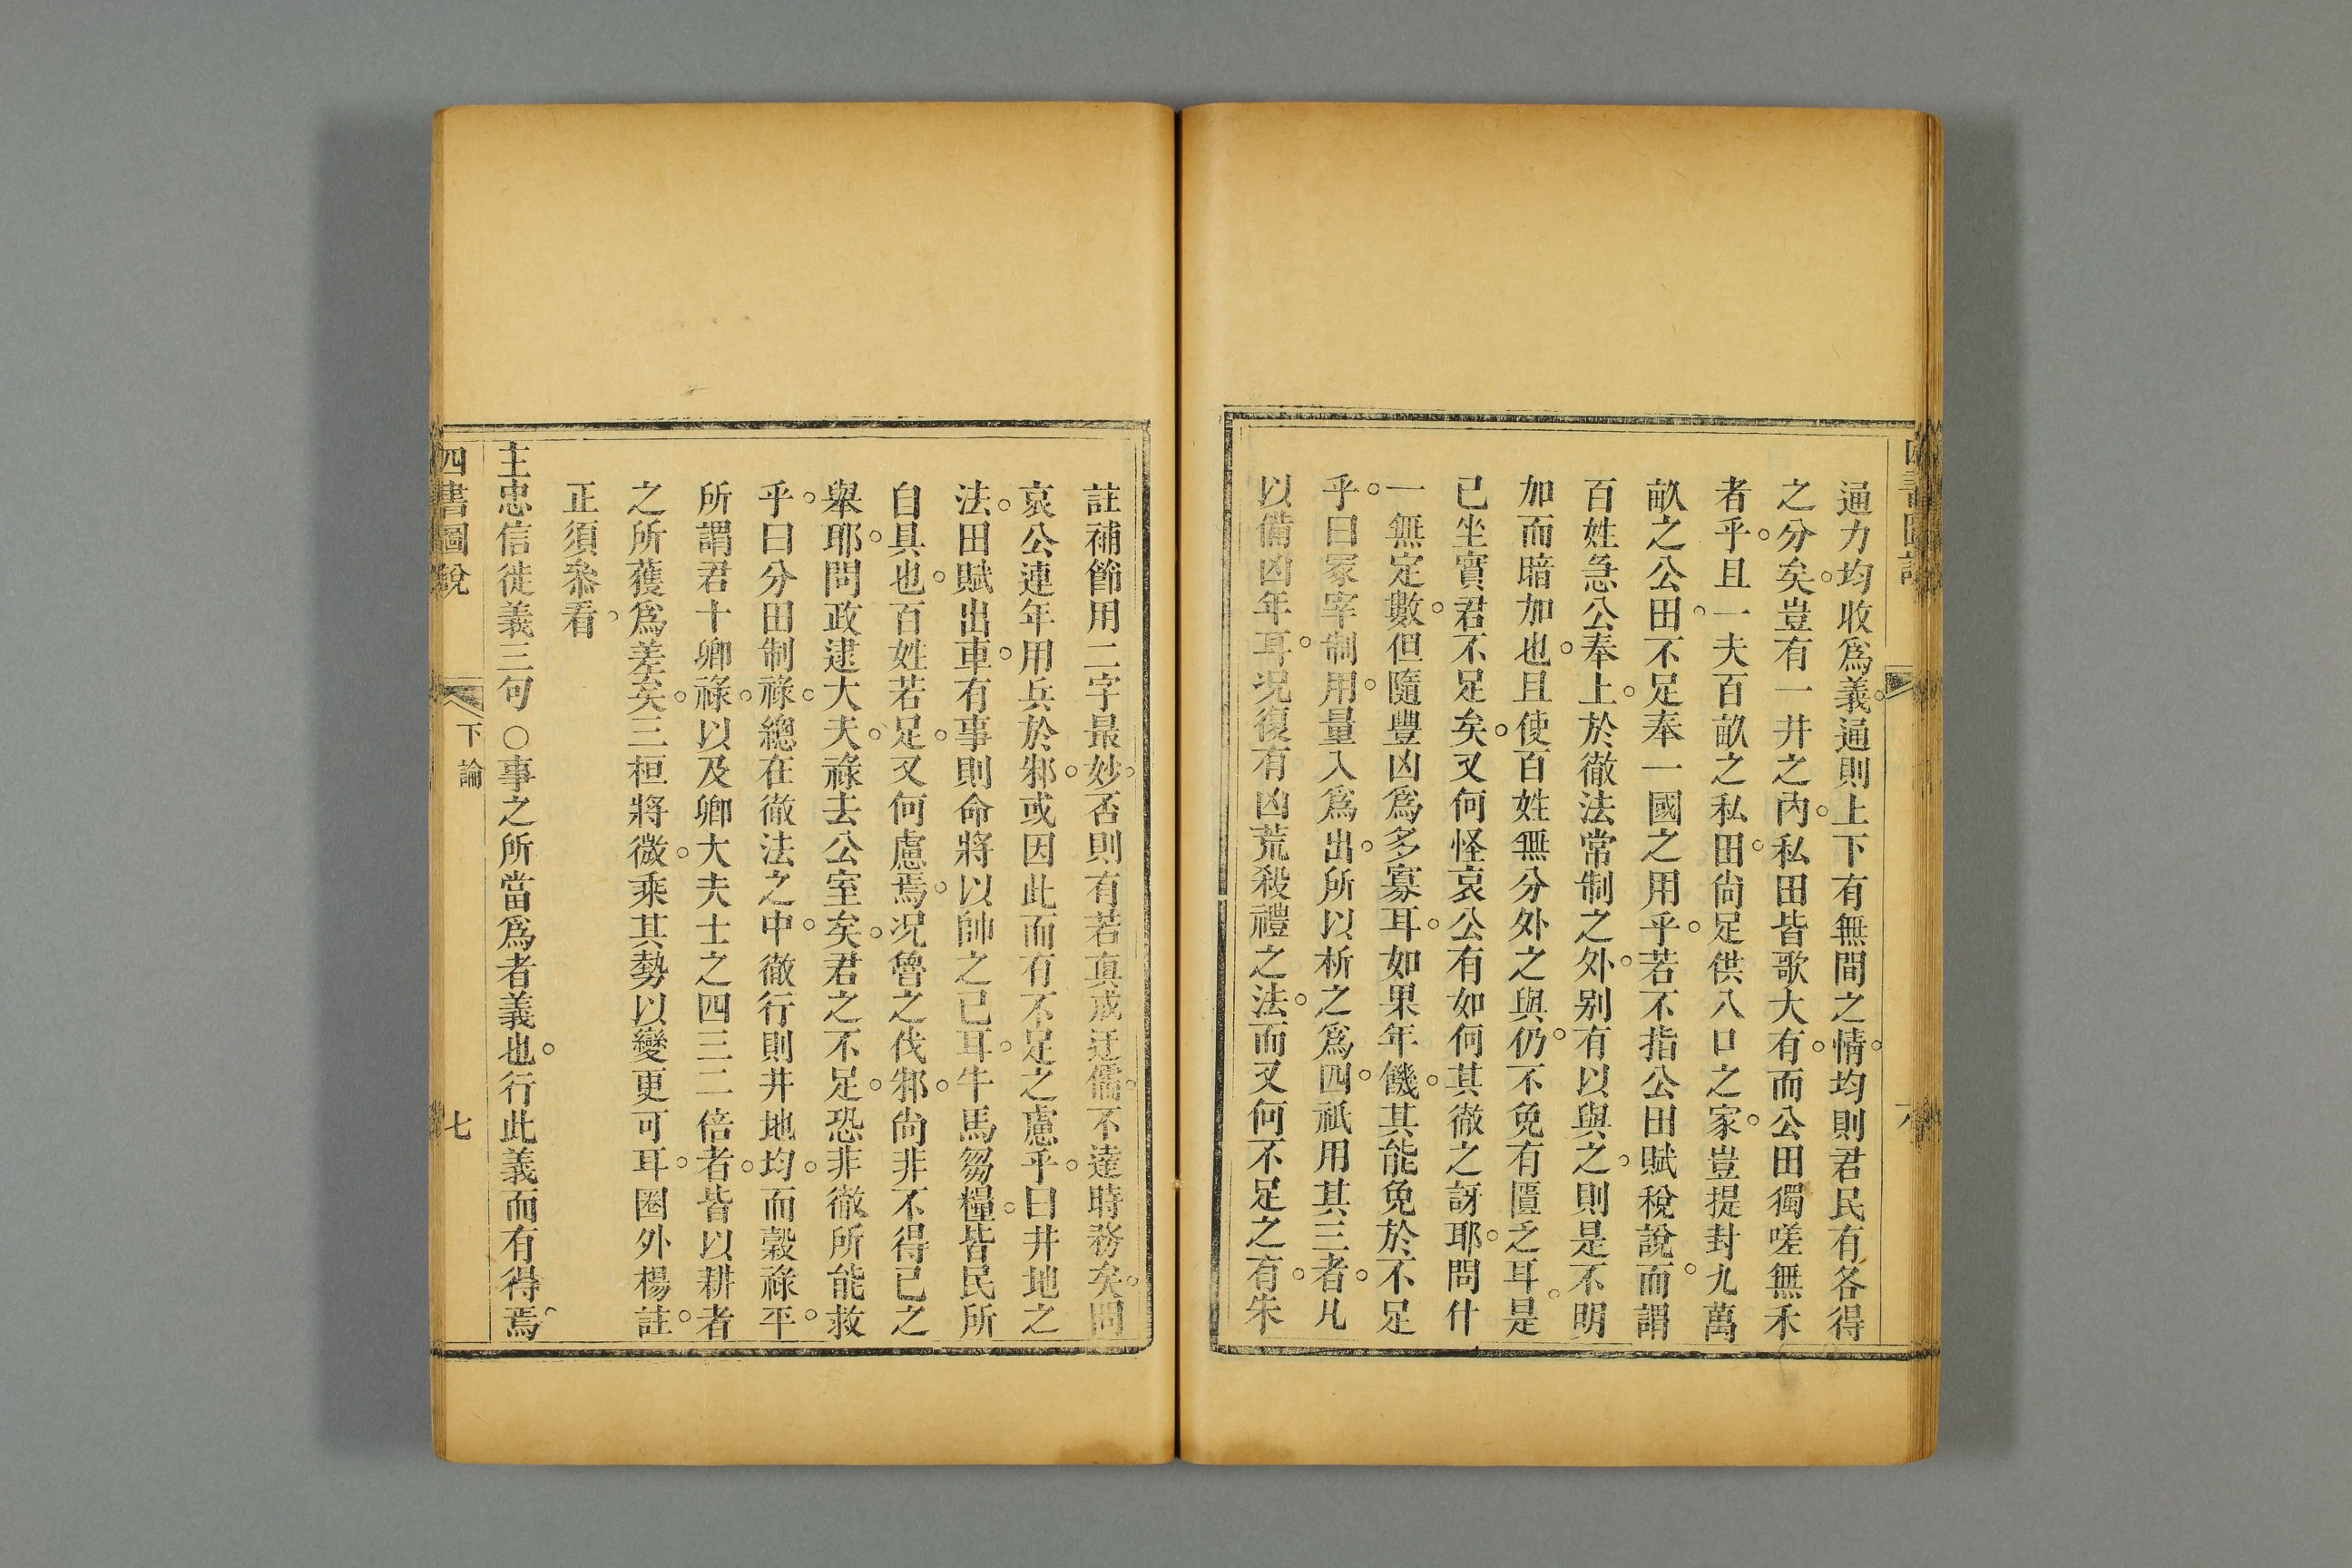 通力均收爲義。通則上下有無間之情。均則君民有各得
之分矣。豈有一井之內。私田皆歌大有。而公田獨嗟無禾
者乎。且一夫百畝之私田。尚足供八口之家。豈提封九萬
畝之公田。不足奉一國之用乎。若不指公田賦稅說。而謂
百姓急公奉上。於徹法常制之外。别有以與之。則是不明
加而暗加也。且使百姓無分外之與。仍不免有匱乏耳。是
已坐實君不足矣。又何怪哀公有如何其徹之訝耶。問什
一無定數。但隨豐凶爲多寡耳。如果年饑。其能免於不足
乎。曰冢宰制用。量入爲出。所以析之爲四。祇用其三者。凡
以備凶年耳。況復有凶荒殺禮之法。而又何不足之有。朱
註補節用二字最妙。否則有若真成迂儒。不達時務矣。問
哀公連年用兵於邾。或因此而有不足之慮乎。曰井地之
法。田賦出車。有事則命將以帥之已耳。牛馬芻糧。皆民所
自具也。百姓若足。又何慮焉。況魯之伐邾。尚非不得已之
舉耶。問政逮大夫。祿去公室矣。君之不足。恐非徹所能救
乎。曰分田制祿。總在徹法之中。徹行則井地均。而穀祿平。
所謂君十卿祿。以及卿大夫士之四三二倍者。皆以耕者
之所獲爲差矣。三桓將微。乘其勢以變更可耳。圈外楊註。
正須叅看。
主忠信徙義三句 ○事之所當爲者義也。行此義而有得焉。
四書圖說
下論
七